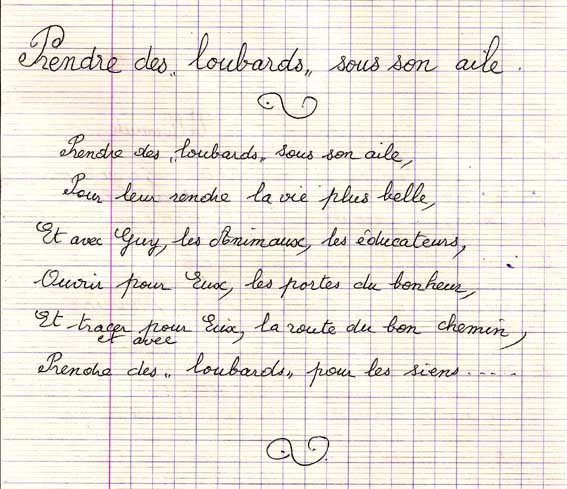 Prendre des „loubards„ sous son aile.
Prendre des „loubards„ sous son aile,
Pour leur rendre la vie plus belle,
Et avec Guy, les Animaux, les éducateurs,
Ouvrir pour Eux, les portes du bonheur,
Et tracer pour Eux, la route du bon chemin,
et avec
Prendre des „loubards„ pour les siens.....